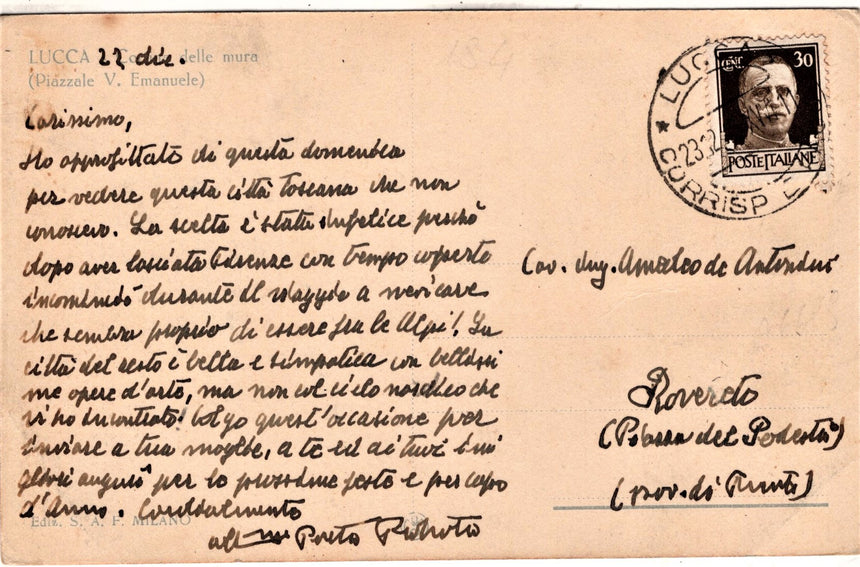 LUCCA 22 dic. delle mura
(Piazzale V. Emanuele)
Carissimo,
Ho approfittato di questa domenica
per vedere questa città toscana che non
conoscevo. La scelta è stata infelice perchè
dopo aver lasciata Firenze con tempo coperto
incominciò durante il viaggio a nevicare
che sembra proprio di essere fra le Alpi! La
città del resto è bella e simpatica con bellissi
me opere d'arte, ma non col cielo nordico che
vi ho incontrato! Colgo quest'occasione per
inviare a tua moglie, a te ed ai tuoi i mi
gliori auguri per le prossime feste e per capo
d'Anno. Cordialmente
Ediz. S. A. F. MILANO
LUCCA
CORRISP E
CENT. 30
POSTE ITALIANE
Cav. Ing. Amedeo de Antonini
Rovereto
(Piazza del Podestà)
(prov. di Trento)